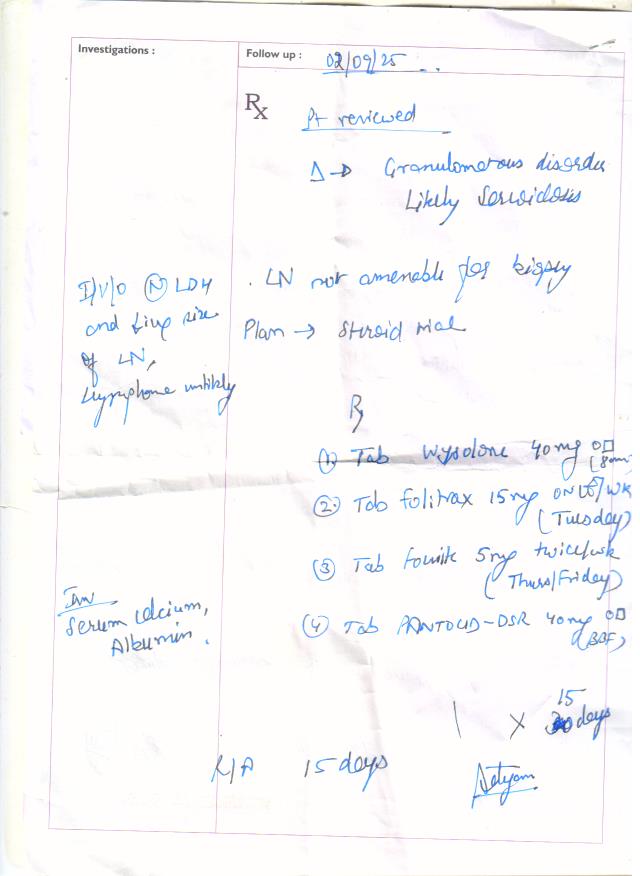 Investigations :
Follow up : 02/09/25
Rx
Pt reviewed
Δ → Granulomatous disorder
Likely Sarcoidosis
I/V/O (N) LDH
and size
of LN,
Lymphoma unlikely
. LN not amenable for biopsy
Plan → Steroid trial
Rx
(1) Tab Wysolone 40mg OD
(8am)
(2) Tab Folitrax 15mg once/wk
(Tuesday)
(3) Tab 5mg twice/wk
(Thurs/Friday)
(4) Tab PANTOCID-DSR 40mg OD
(BBF)
Inv
Serum calcium,
Albumin.
15
x days
R/A 15 days